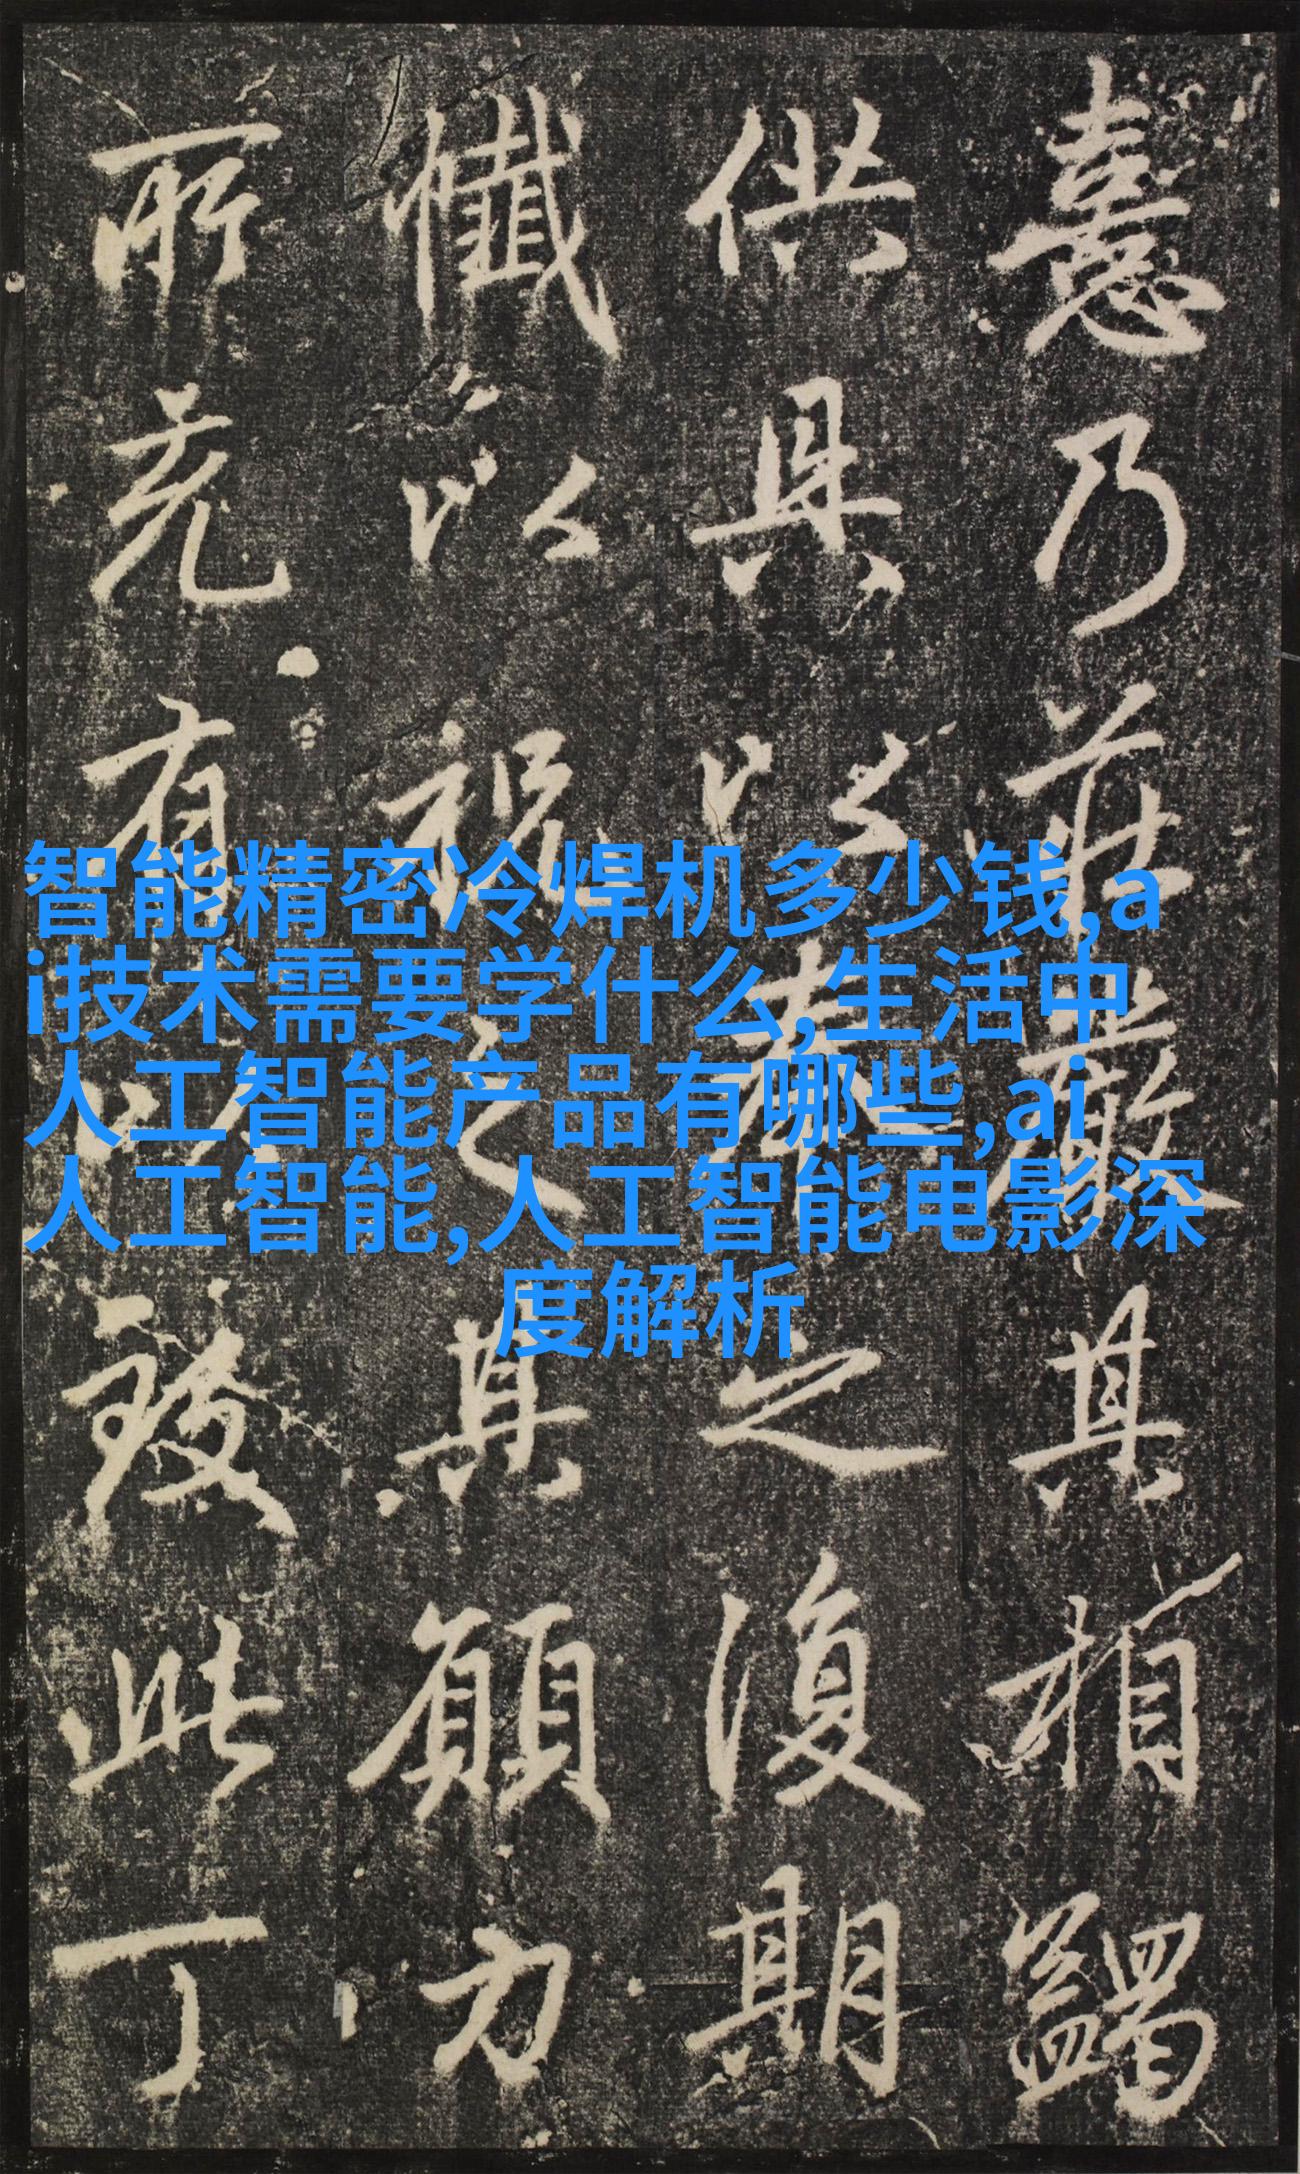 憙乃莊嚴其相蠲
供具以奉之復期
懺以祝之其願
所有以致此丁
智能精密冷焊机多少钱,a
i技术需要学什么,生活中
人工智能产品有哪些,ai
人工智能,人工智能电影深
度解析